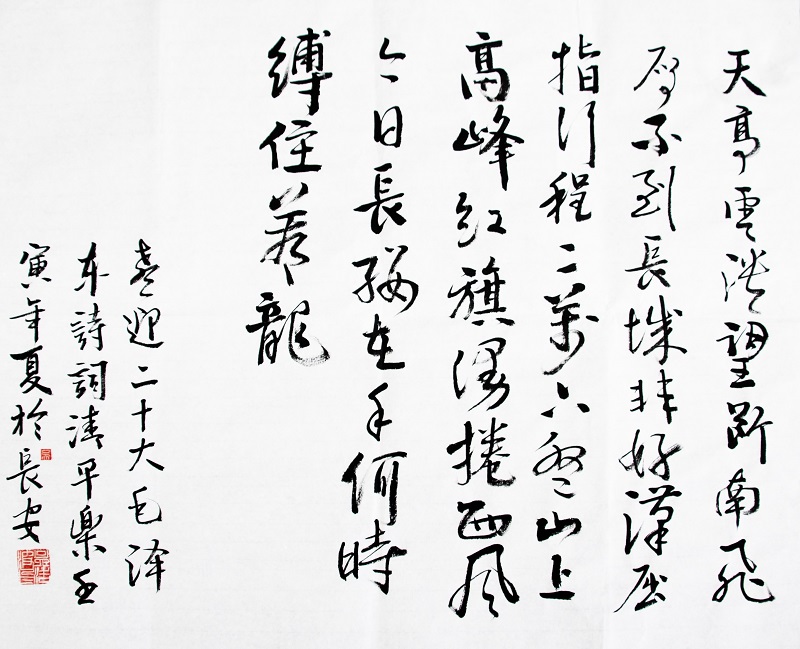 天高雲淡望断南飛
雁不到長城非好漢屈
指行程二萬六盤山上
高峰红旗漫捲西风
今日長纓在手何時
縛住蒼龍
喜迎二十大毛泽
东詩詞清平樂壬
寅年夏於長安